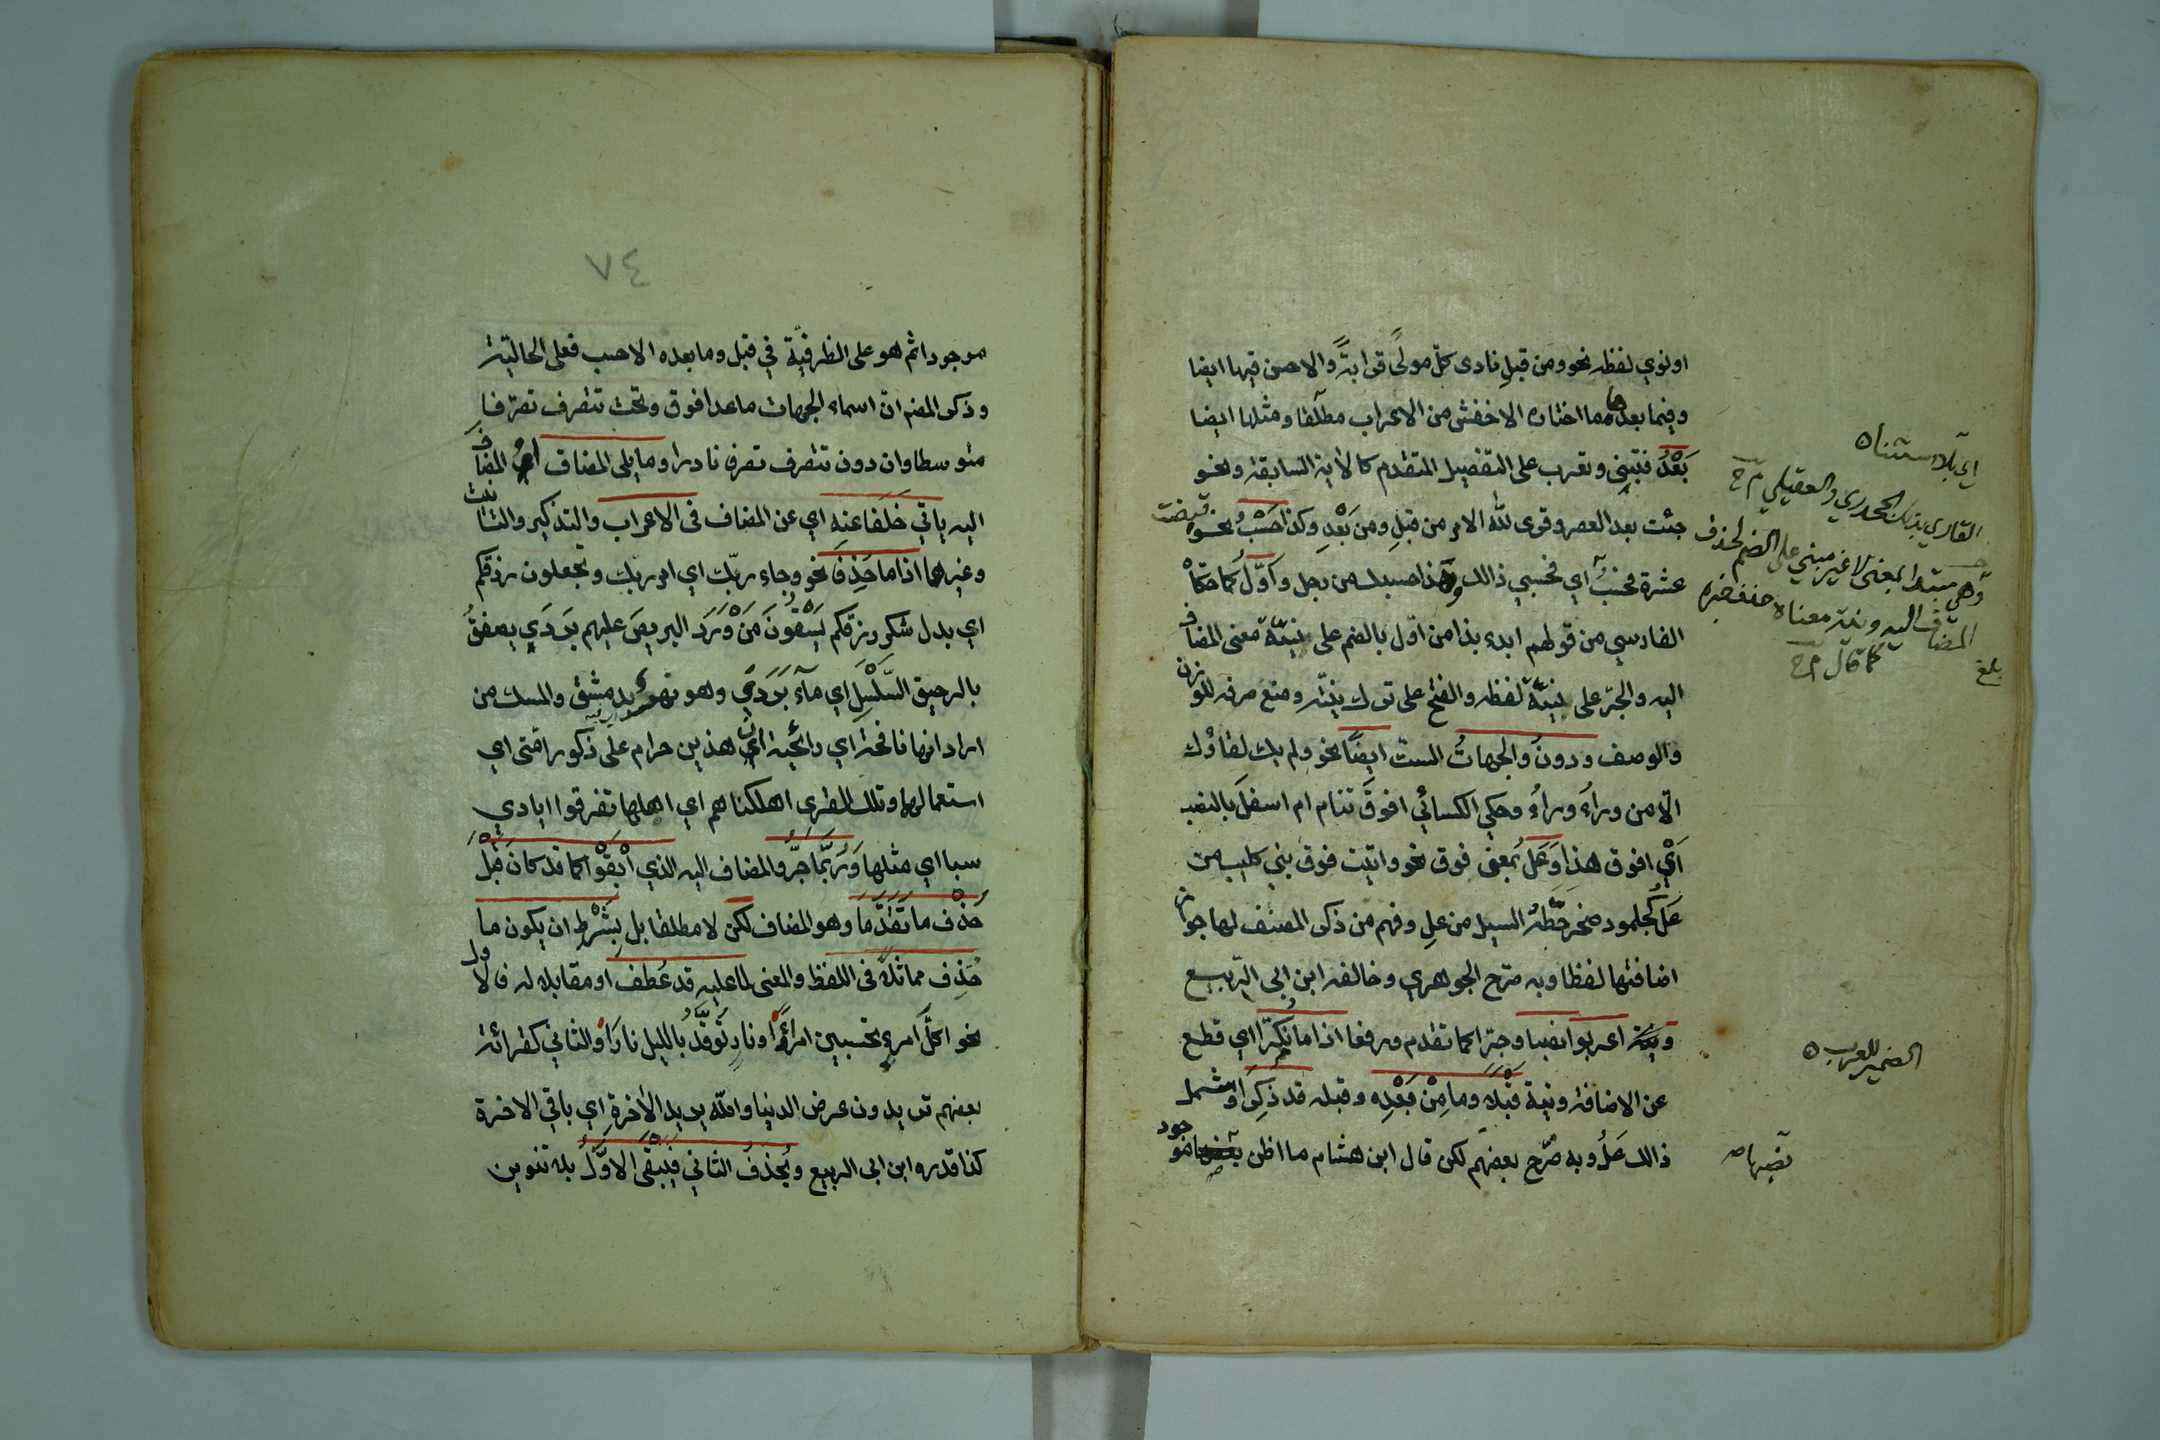 او نوي لفظه نحو ومن قبلِ نادى كلّ مولًى قرابةً والاحسن فيها ايضا
وفيما بعدها مما اختاره الاخفش من الاعراب مطلقا ومثلها ايضا
بَعْدُ فتبنى وتعرب على التفصيل المتقدم كالآية السابقة ونحو
جئت بعد العصر وقرى لله الامر من قبلِ ومن بَعْدِ وكذا حَسْبُ نحو قبضت
عشرة فحسبُ اي فحسبي ذالك وهذا حسبك من رجل وَاَوَّلُ كما حكاه
الفارسي من قولهم ابدء بذا من اوّل بالضم على نيّة معنى المضاف
اليه والجرّ على نيّة لفظه والفتح على ترك نيّته ومنع صرفه للوزن
والوصف ودونُ والجهاتُ الست ايضًا نحو ولم يك لقاؤك
الّا من وراءُ وراءُ وحكى الكسائي افوقَ تنام ام اسفلَ بالنصب
اَيْ افوق هذا وَعَلُ بمعنى فوق نحو واتيت فوق بني كليب من
عَلُ كجلمود صخر حطّهُ السيل من علِ وفهم من ذكر المصنف لها جواز
اضافتها لفظا وبه صرّح الجوهري وخالفه ابن ابي الرّبيع
واعربوا نصبا وجرّا كما تقدم ورفعا اذا ما نُكّرا اي قطع
عن الاضافة ونية قَبْلًا وما مِنْ بَعْدِه وقبله قد ذُكِرَا وشمل
ذالك عَلُ وبه صرّح بعضهم لكن قال ابن هشام ما اظن نصبها موجود
اي بلا استثناه
القاري بذلك الجحدري والعقيلي م ح
وهي مبتدا بمعنى لا غير مبني على الضم لحذف
المضاف اليه ونية معناه حذف خبره
كما قال م ح
بلغ
الضمير للعرب ه
نصبها صه
٧٤
موجودا ثم هو على الظرفيّة في قبل وما بعده الاحسب فعلى الحاليّة
وذكر المصنم انّ اسماء الجهات ما عدا فوق وتحت تتصرف تصرّفا
متوسطا وان دون تتصرف تصرفا نادرا وما يلي المضاف اى المضاف
اليه ياتي خَلَفا عنه اي عن المضاف في الاعراب والتذكير والتانيث
وغيرهما اذا ما حُذِفَا نحو وجاء ربّك اي امر ربّك وتجعلون رزقكم
اي بدل شكر رزقكم يَسْقُونَ مَنْ وَرَدَ البريصَ عليهم بَرَدَي يصفقُ
بالرحيق السَّلْسَلِ اي مآءَ بَرَدَي وهو نهر بدمشق والمسك من
اردانها نافحة اي رائحة انّ هذين حرام على ذكور امّتي اي
استعمالهما وتلك القرى اهلكناهم اي اهلها تفرقوا ايادي
سبا اي مثلها وَرُبَّمَا جَرُّوا المضاف اليه الذي اَبْقَوْا كما قد كانَ قَبْلَ
حَذْف ما تَقَدَّمَا وهو المضاف لكن لا مطلقا بل بِشَرْطِ ان يكون ما
حُذِف مماثلا في اللفظ والمعنى لما عليه قد عُطف او مقابلا له فالاول
نحو اكلَّ امرءٍ تحسبين امرأً ونارٍ تَوَقَّدُ بالليل نارَا والثاني كقرائة
بعضهم تريدون عرض الدنيا والله يريد الآخرةِ اي باقي الاخرة
كذا قدره ابن ابي الربيع ويُحذفُ الثاني فَيَبْقَى الاوَّلُ بلا تنوين